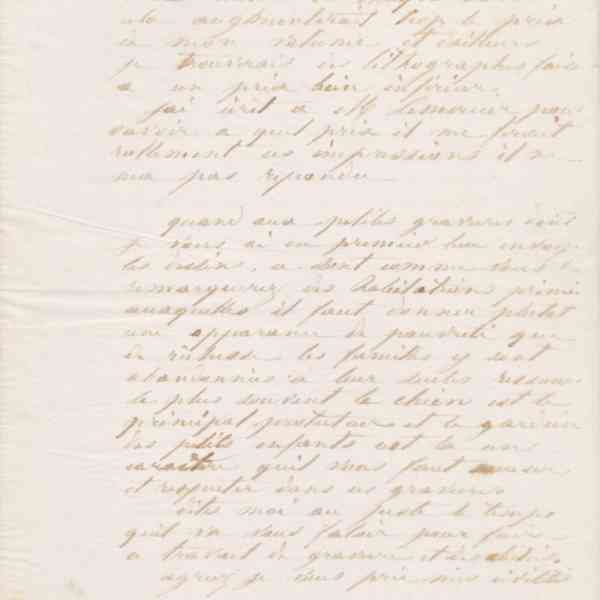 cela augmenterait trop le prix
de mon volume et d'ailleurs
je trouverais des lithographes faire
a un prix bien inférieur.
jai écrit a Mr Lemercier pour
savoir a quel prix il me ferait
rellement ces impressions il ne
ma pas repondu
quand aux petites gravures dont
je vous ai en premier lieu envoyé
les dessins, ce sont comme vous le
remarquerez des habitations primi
auxquelles il faut donner plutot
une apparence de pauvreté que
de richesse les familles y sont
abandonnées a leur seules ressources
le plus souvent le chien est le
principal protecteur et le gardien
des petits enfants cest la un
caractère quil nous faut
et respecter dans ces gravures
dites moi au juste le temps
quil va vous faloir pour faire
ce travail de gravure et
agréez je vous prie mes civilités